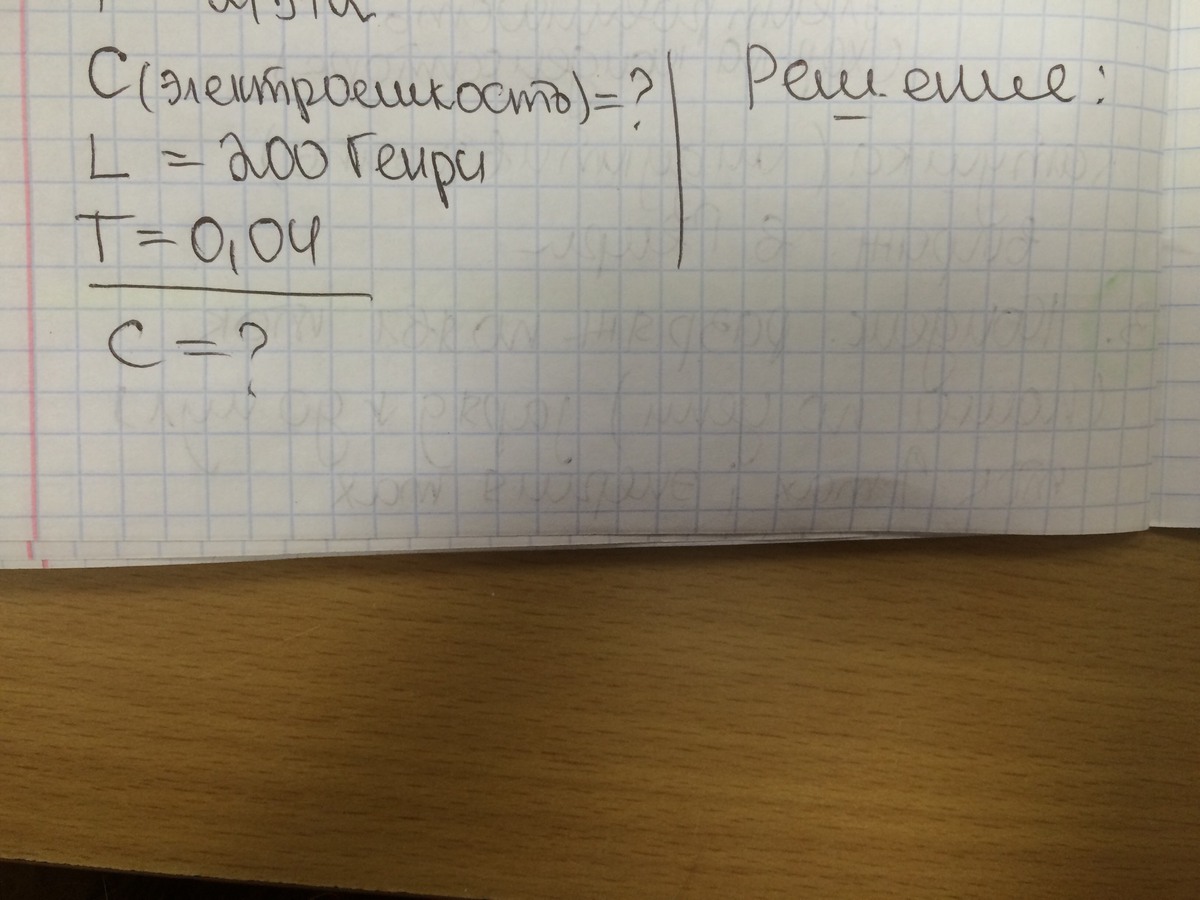 C (электроемкость) = ?
Решение:
L = 200 Генри
T = 0,04
C = ?